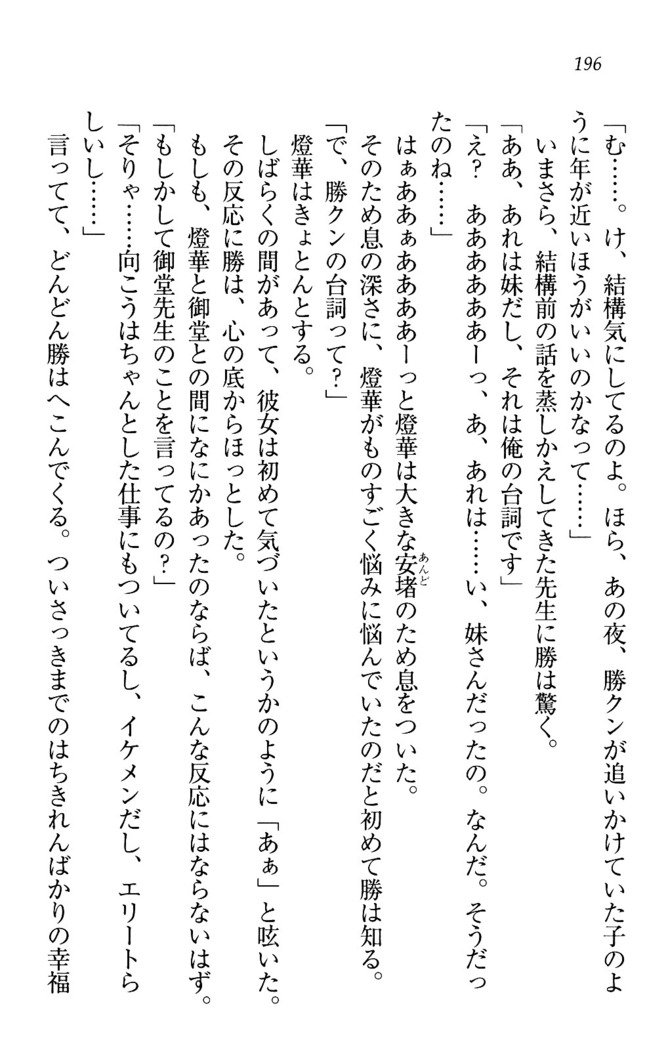 196
「む……。け、結構気にしてるのよ。ほら、あの夜、勝クンが追いかけていた子のよ
うに年が近いほうがいいのかなって……」
いまさら、結構前の話を蒸しかえしてきた先生に勝は驚く。
「ああ、あれは妹だし、それは俺の台詞です」
「え？　ああああああーっ、あ、あれは……い、妹さんだったの。なんだ。そうだっ
たのね……」
はぁああぁああああーっと燈華は大きな安堵のため息をついた。
あんど
そのため息の深さに、燈華がものすごく悩みに悩んでいたのだと初めて勝は知る。
「で、勝クンの台詞って？」
燈華はきょとんとする。
しばらくの間があって、彼女は初めて気づいたというかのように「あぁ」と呟いた。
その反応に勝は、心の底からほっとした。
もしも、燈華と御堂との間になにかあったのならば、こんな反応にはならないはず。
「もしかして御堂先生のことを言ってるの？」
「そりゃ……向こうはちゃんとした仕事にもついてるし、イケメンだし、エリートら
しいし……」
言ってて、どんどん勝はへこんでくる。ついさっきまでのはちきれんばかりの幸福